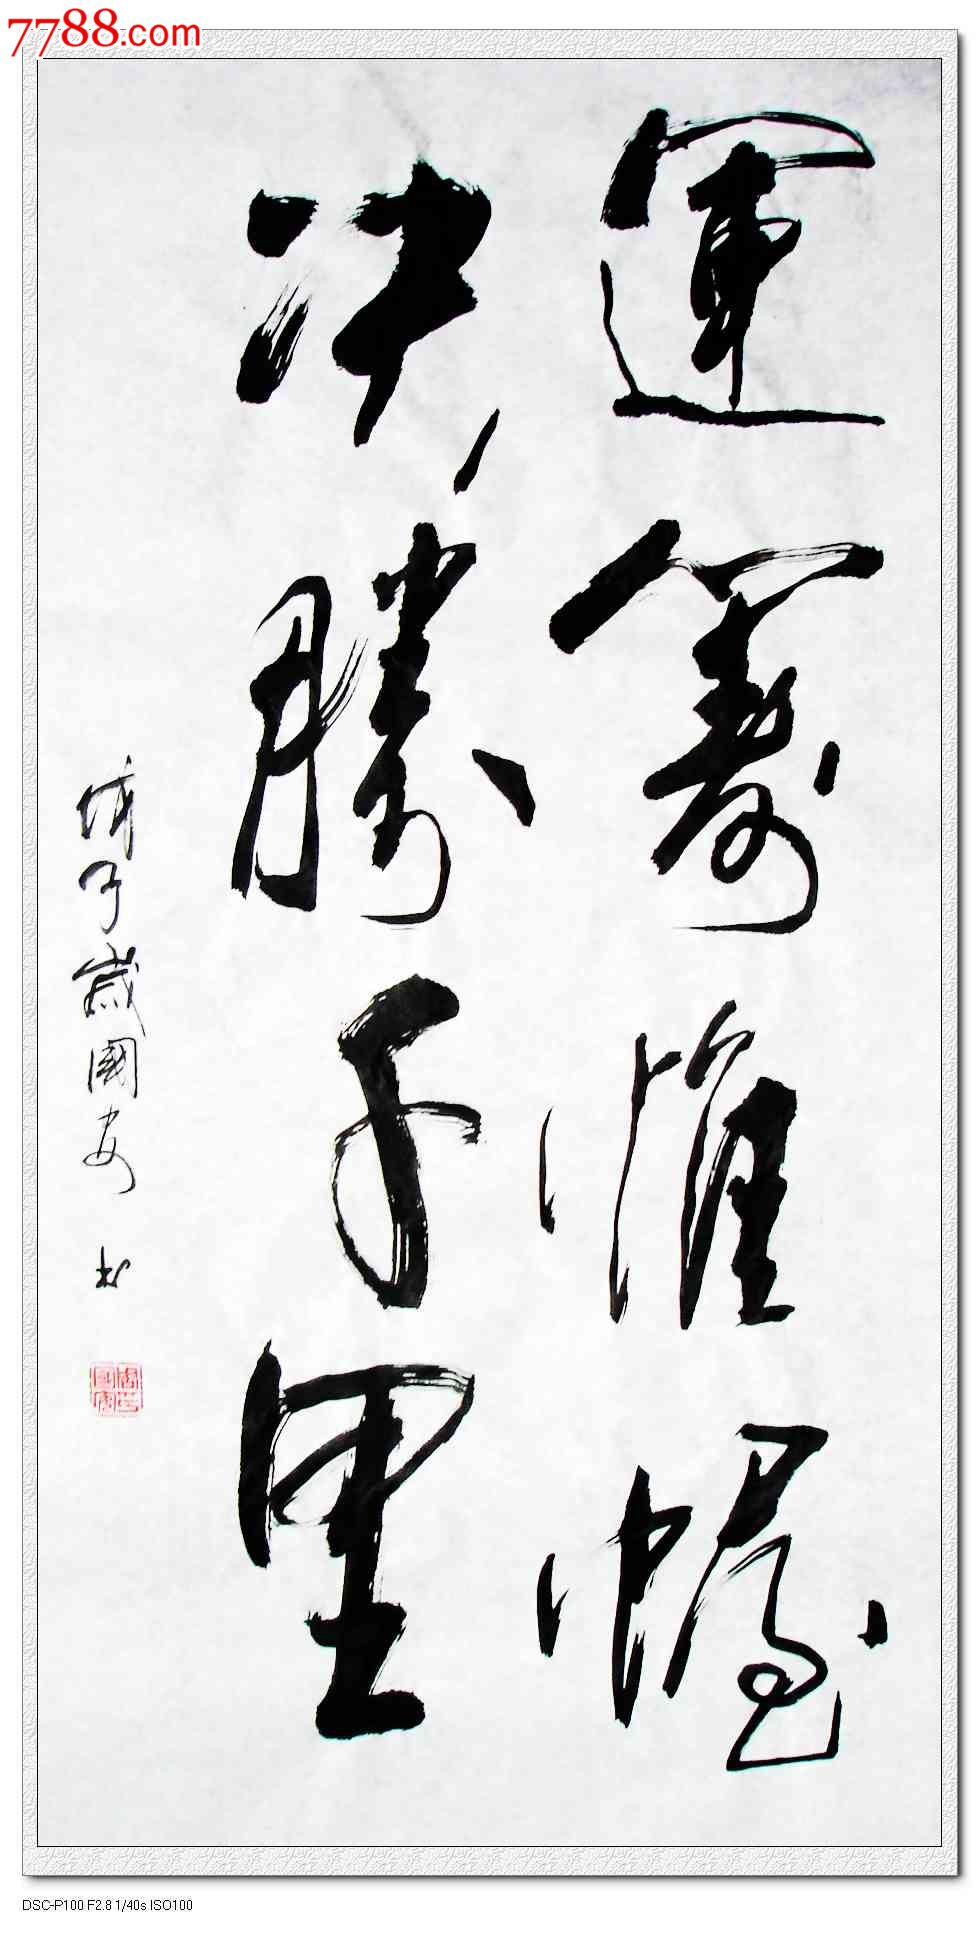 7788.com
運籌帷幄
决勝千里
戊子歲國安书
DSC-P100 F2.8 1/40s ISO100